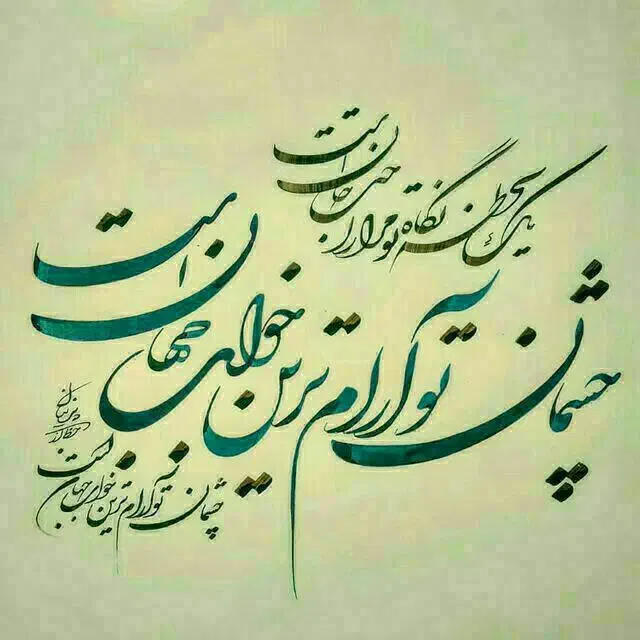 یک لحظه نگاه تو مرا راحت جان است
چشمان تو آرام ترین خواب جهان است
چشمان تو آرام ترین خواب جهان است